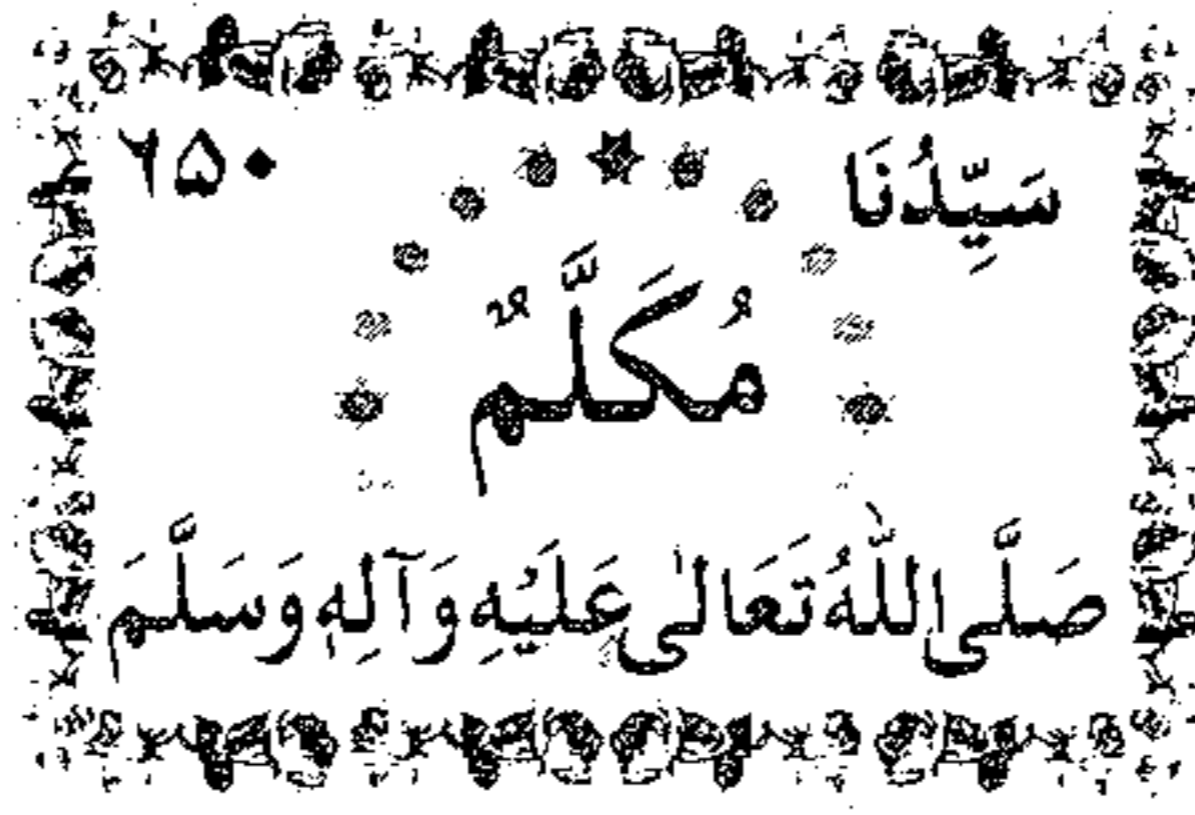 سَيِّدُنَا ۶۵۰
مُكَلَّمٌ
صَلَّى اللّٰهُ تَعَالىٰ عَلَيْهِ وَآلِهٖ وَسَلَّمَ